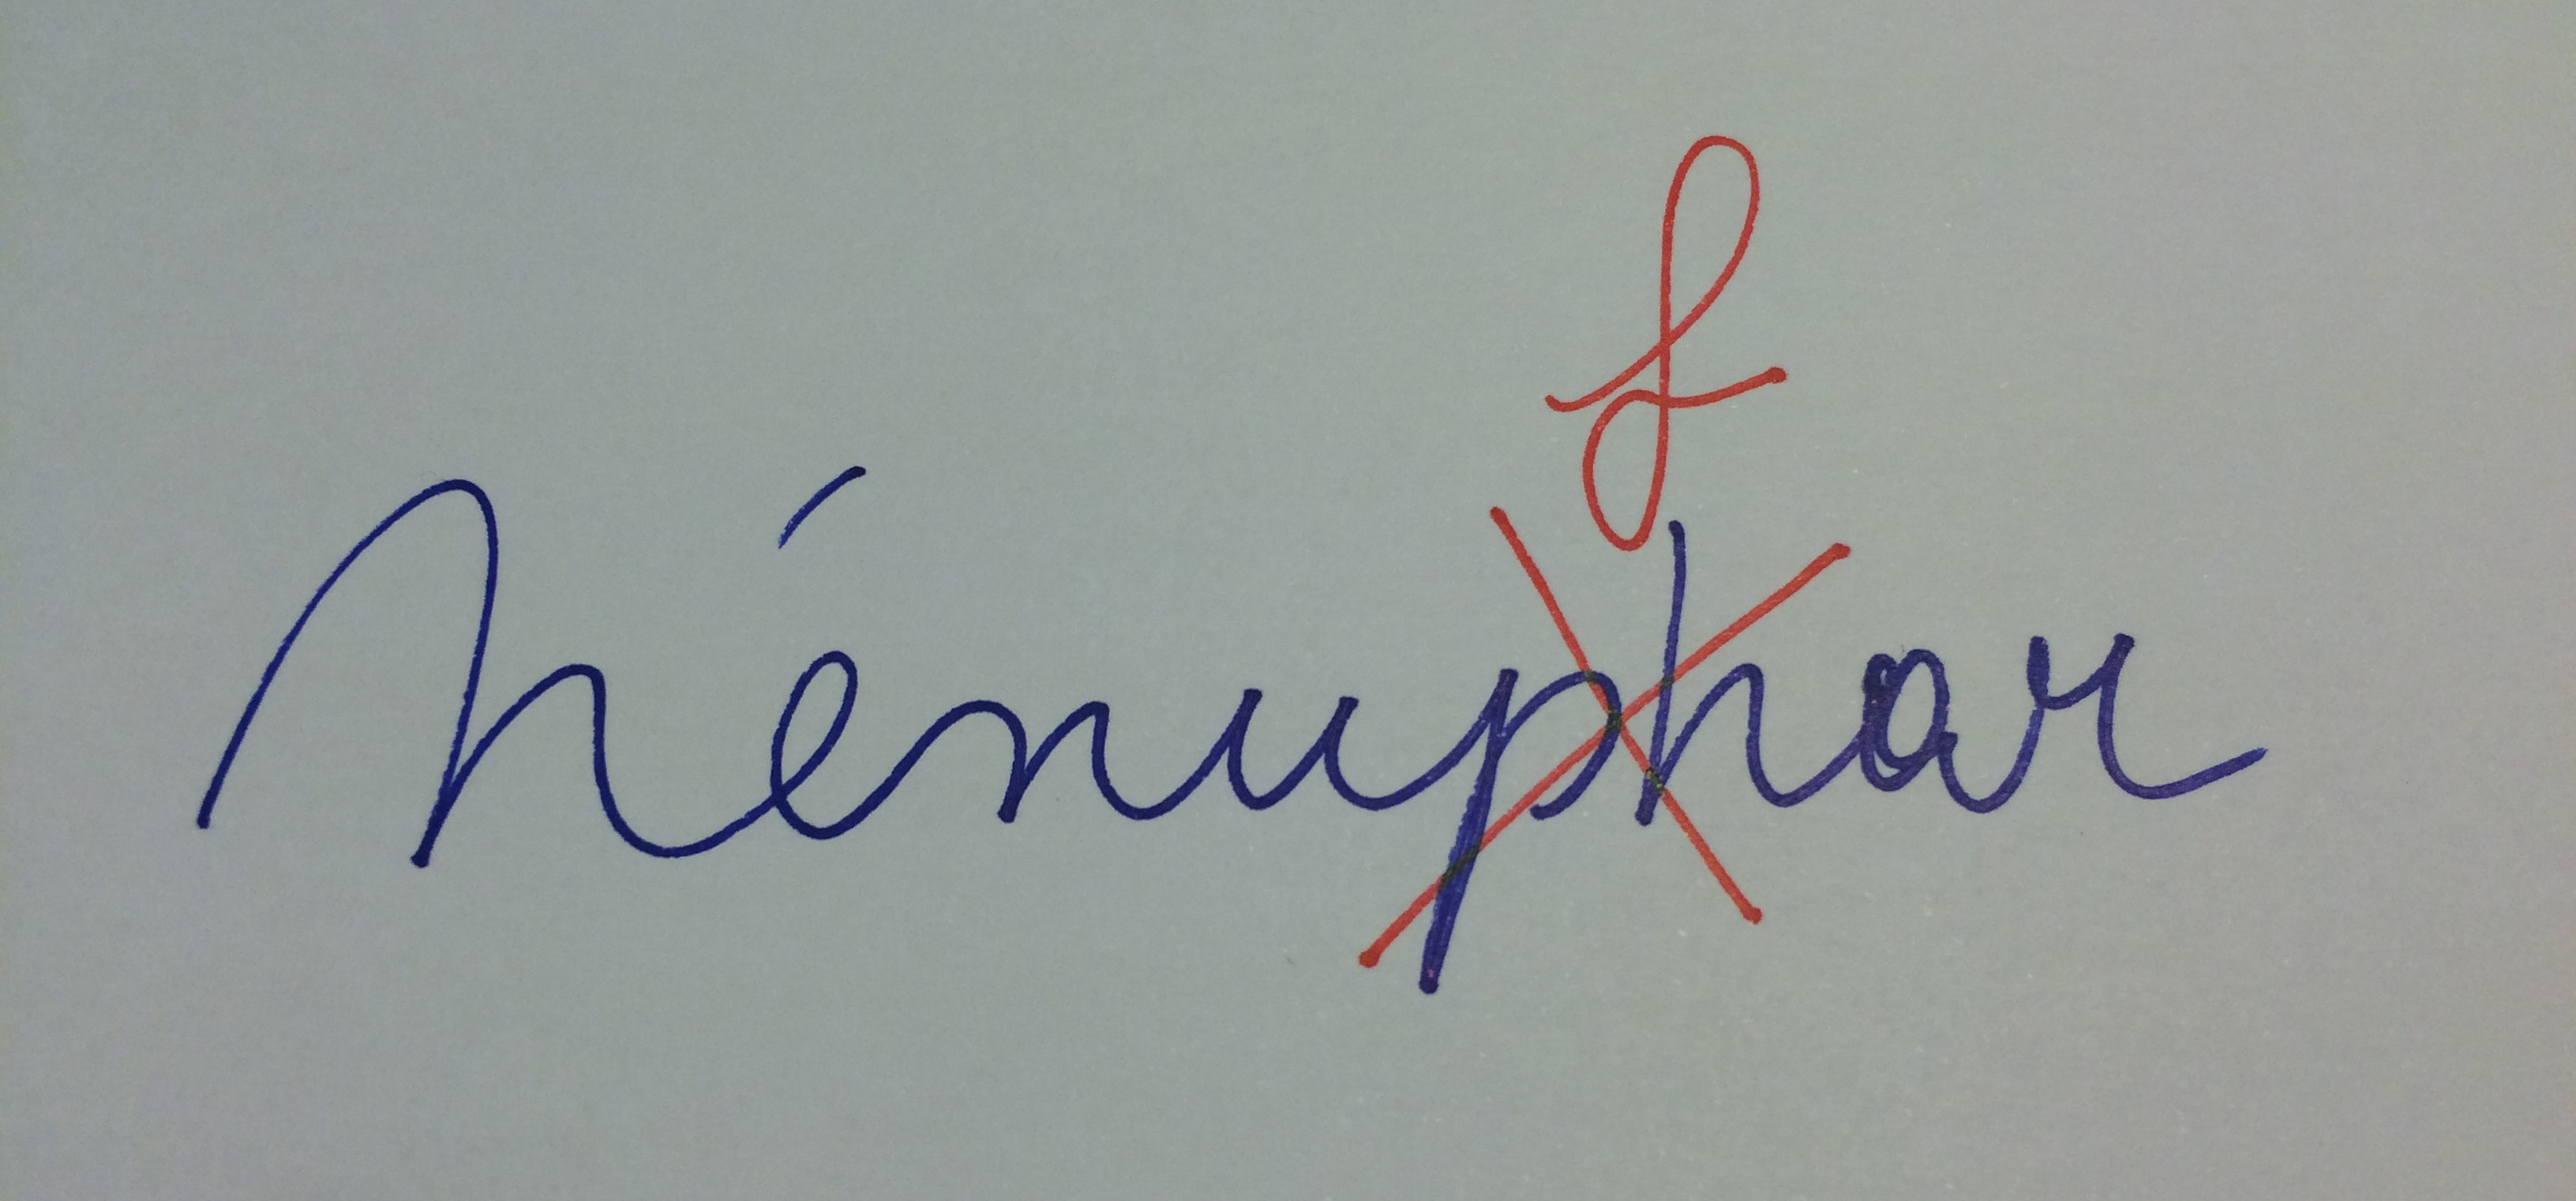 f
Nénuphar